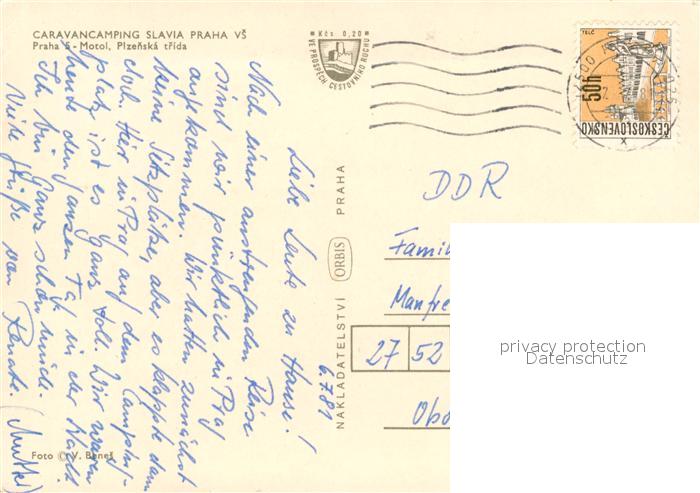 CARAVANCAMPING SLAVIA PRAHA VŠ
Praha 5 - Motol, Plzeňská třída
Kčs 0,20
VE PROSPĚCH CESTOVNÍHO RUCHU
TELČ
50h
ČESKOSLOVENSKO
6.7.81
Liebe Leute zu Hause!
Nach einer anstrengenden Reise
sind wir pünktlich in Prag
angekommen. Wir hatten zunächst
keine Sitzplätze, aber es klappte dann
doch. Hier in Prag auf dem Camping-
platz ist es ganz toll. Wir waren
heute den ganzen Tag in der Stadt
Ich bin ganz schön müde.
Viele Grüße von Renate. (Mutti)
NAKLADATELSTVÍ ORBIS PRAHA
DDR
Famil
Manfre
27 52
Obo
privacy protection
Datenschutz
Foto © V. Beneš